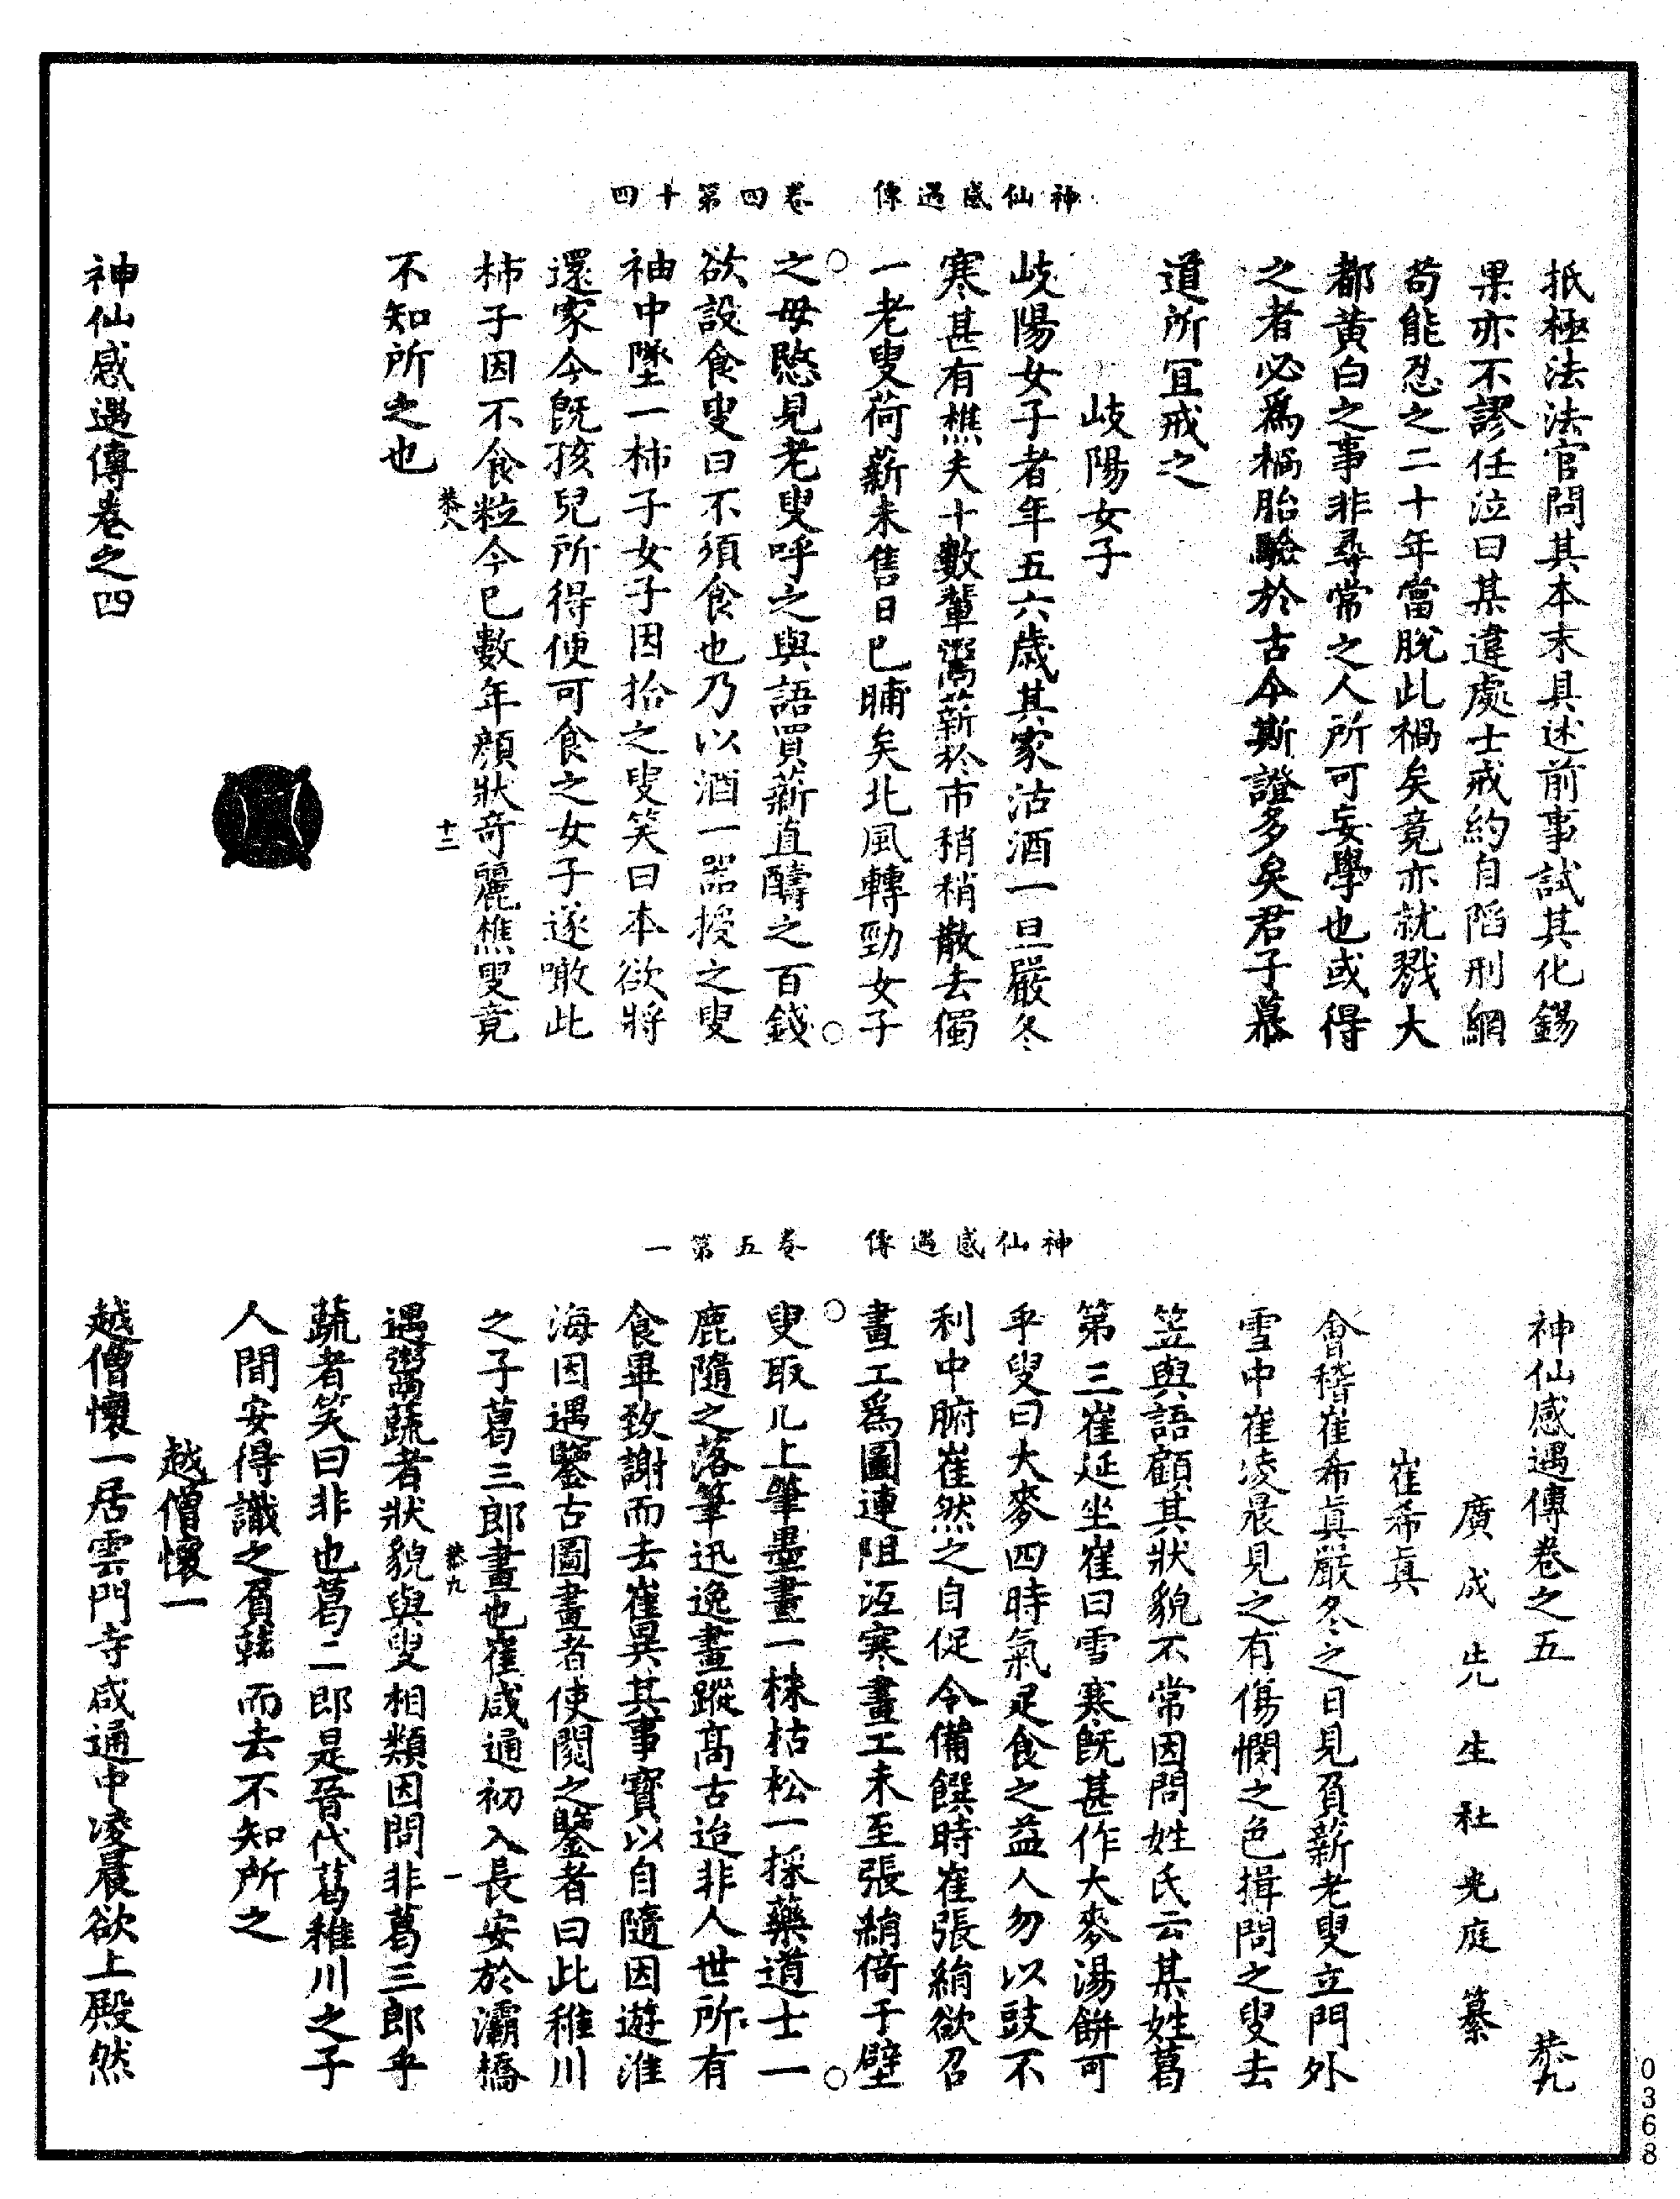 神仙感遇傳　卷四第十四
抵極法法官問其本末具述前事試其化錫
果亦不謬任泣曰某違處士戒約自陷刑網
苟能忍之二十年當脫此禍矣竟亦就戮大
都黃白之事非尋常之人所可妄學也或得
之者必爲禍胎驗於古今斯證多矣君子慕
道所宜戒之
岐陽女子
岐陽女子者年五六歲其家沽酒一旦嚴冬
寒甚有樵夫十數輩鬻薪於市稍稍散去獨
一老叟荷薪未售日已晡矣北風轉勁女子
之母愍見老叟呼之與語買薪直酬之百錢
欲設食叟曰不須食也乃以酒一器授之叟
袖中墜一柿子女子因拾之叟笑曰本欲將
還家今旣孩兒所得便可食之女子遂噉此
柿子因不食粒今已數年顔狀奇麗樵叟竟
恭八　十三
不知所之也
神仙感遇傳卷之四
神仙感遇傳　卷五第一
神仙感遇傳卷之五　恭九
廣成先生杜光庭纂
崔希眞
會稽崔希眞嚴冬之日見負薪老叟立門外
雪中崔凌晨見之有傷憫之色揖問之叟去
笠與語顧其狀貌不常因問姓氏云某姓葛
第三崔延坐崔曰雪寒旣甚作大麥湯餅可
乎叟曰大麥四時氣足食之益人勿以豉不
利中腑崔然之自促令備饌時崔張絹欲召
畫工爲圖連阻沍寒畫工未至張絹倚于壁
叟取几上筆墨畫一株枯松一採藥道士一
鹿隨之落筆迅逸畫蹤高古迨非人世所有
食畢致謝而去崔異其事寶以自隨因遊淮
海因遇鑒古圖畫者使閱之鑒者曰此稚川
之子葛三郎畫也崔咸通初入長安於灞橋
恭九　一
遇鬻蔬者狀貌與叟相類因問非葛三郎乎
蔬者笑曰非也葛二郎是晉代葛稚川之子
人間安得識之負蔬而去不知所之
越僧懷一
越僧懷一居雲門寺咸通中凌晨欲上殿然
0368